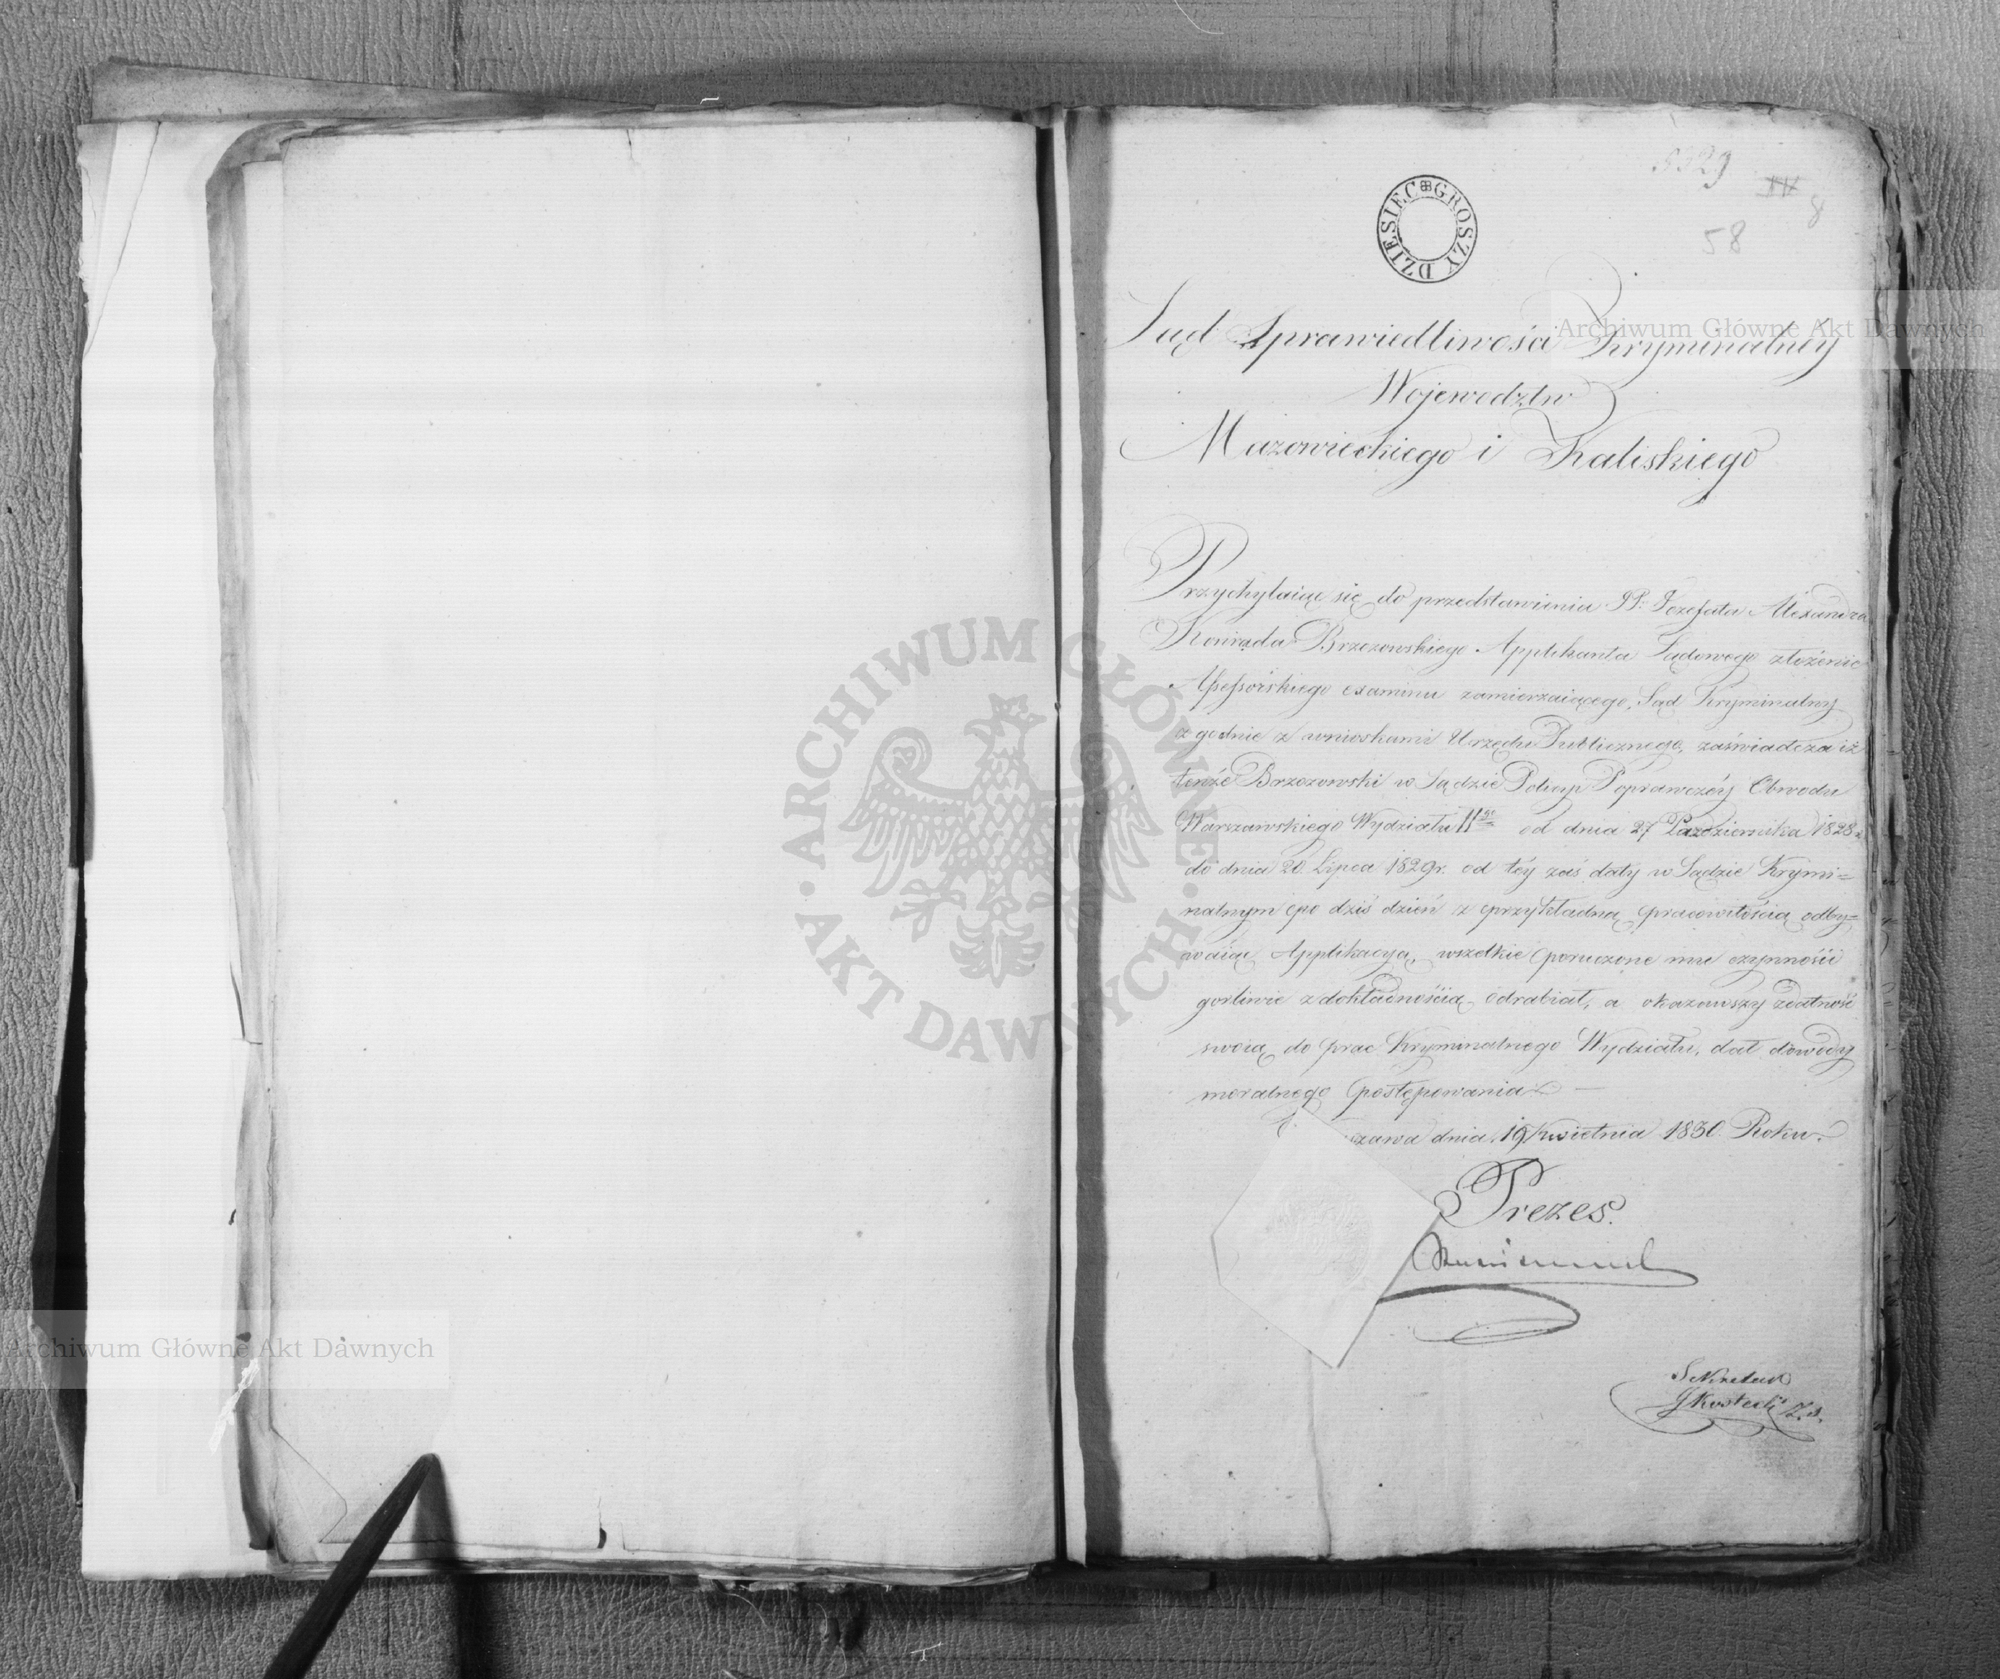 5029
IV
8
58
DZIESIEC GROSZY
Sąd Sprawiedliwości Kryminalnéy
Województw
Mazowieckiego i Kaliskiego
Przychylaiąc się do przedstawienia JP: Jozefata Alexandra
Konrada Brzozowskiego Applikanta Sądowego złożenie
Assessorskiego examinu zamierzaiącego, Sąd Kryminalny
zgodnie z wnioskami Urzędu Publicznego, zaświadcza iż
tenże Brzozowski w Sądzie Policyi Poprawczéy Obwodu
Warszawskiego Wydziału IIgo od dnia 27 Pazdziernika 1828 r.
do dnia 20 Lipca 1829 r. od téy zaś daty w Sądzie Krymi=
nalnym po dziś dzień z przykładną pracowitością odby=
waiąc Applikacyą, wszelkie poruczone mu czynności
gorliwie z dokładnością odrabiał, a okazawszy zdatność
swoią do prac Kryminalnego Wydziału, dał dowody
moralnego postępowania. —
szawa dnia 19 Kwietnia 1830 Roku.
Prezes.
Sekretarz
JKostecki Z.S.
Archiwum Główne Akt Dawnych
Archiwum Główne Akt Dawnych
ARCHIWUM GŁÓWNE AKT DAWNYCH